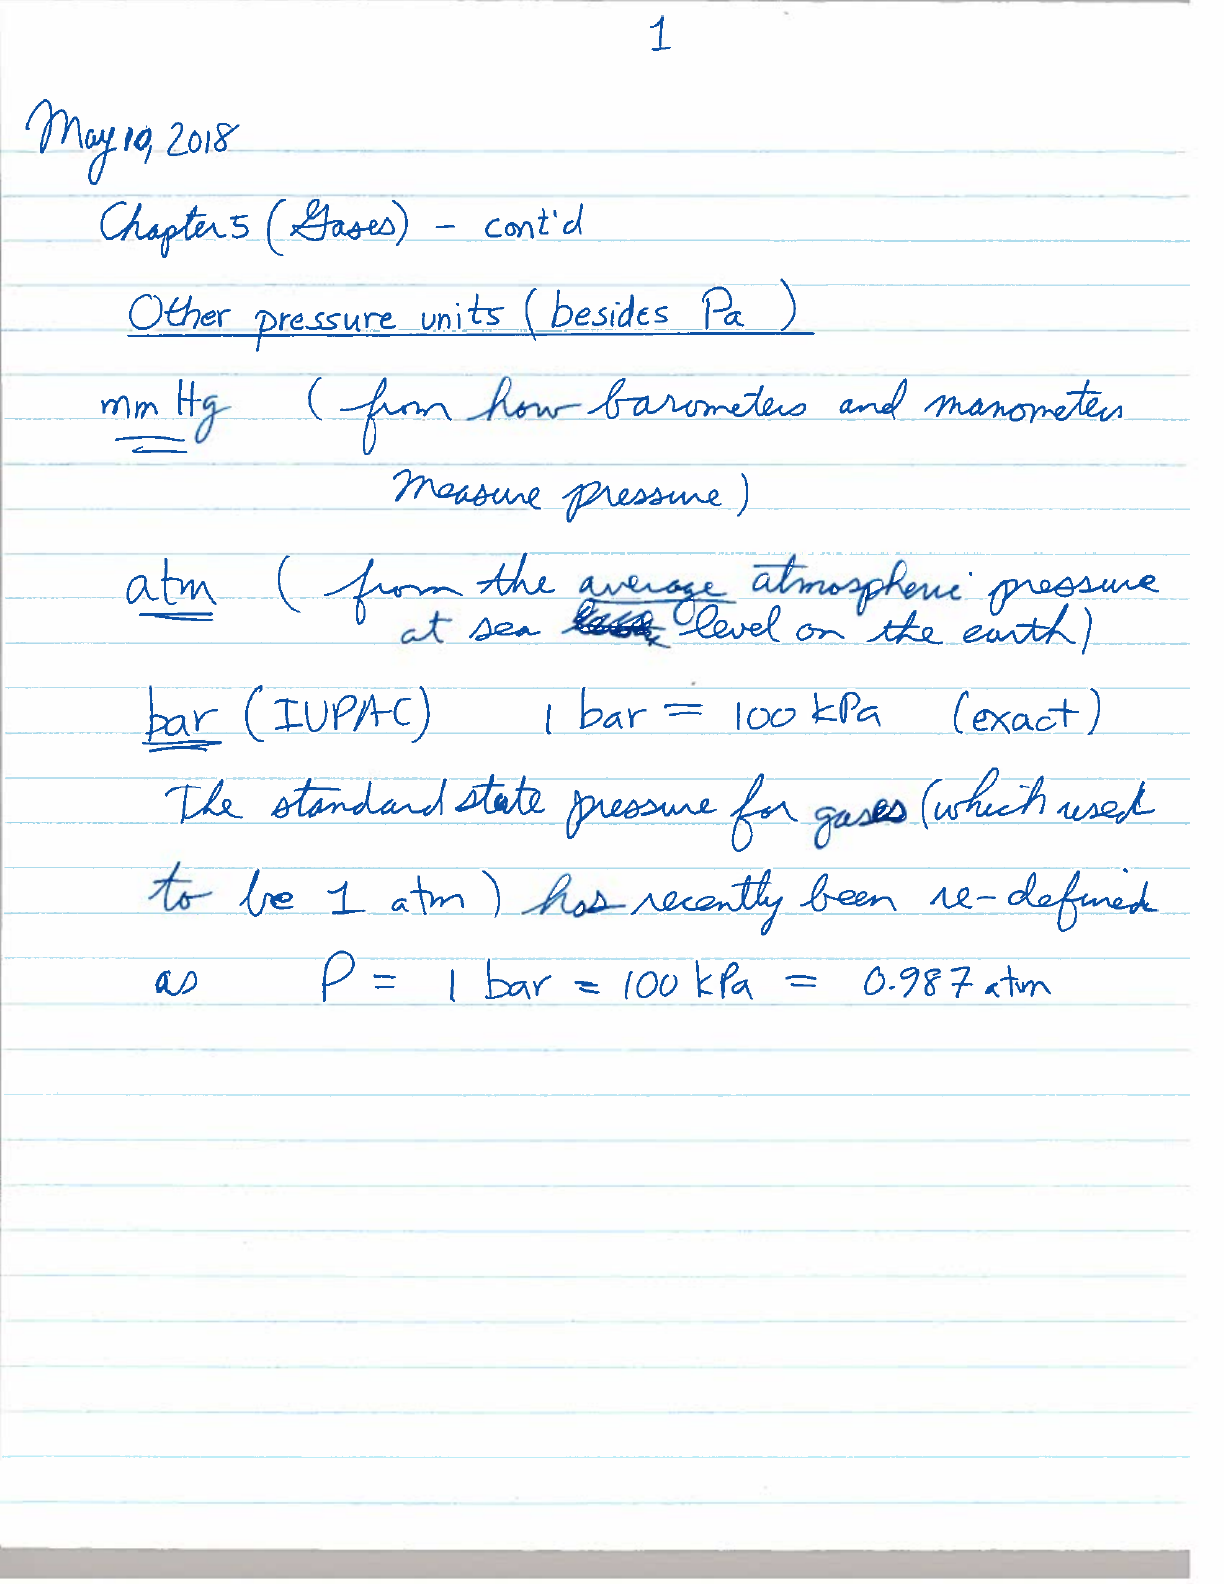 1
May 10, 2018
Chapter 5 (Gases) - cont'd
Other pressure units (besides Pa )
mm Hg ( from how barometers and manometers
measure pressure)
atm ( from the average atmospheric pressure
at sea level on the earth)
bar (IUPAC) 1 bar = 100 kPa (exact)
The standard state pressure for gases (which used
to be 1 atm ) has recently been re-defined
as P = 1 bar = 100 kPa = 0.987 atm